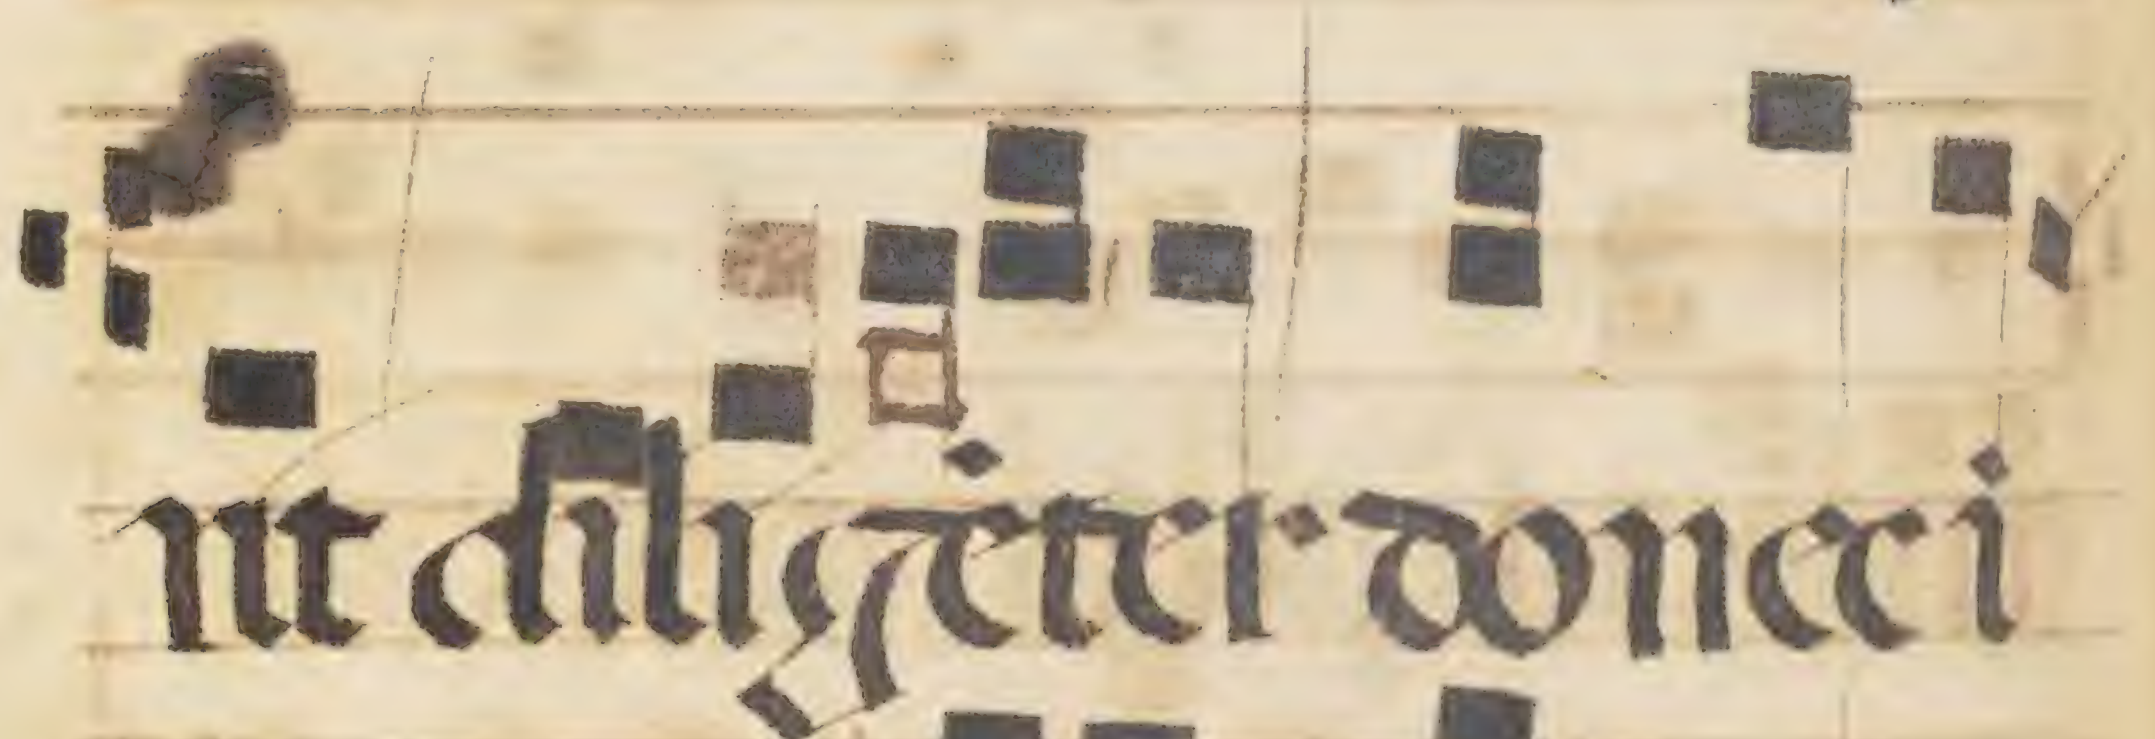 ut diligẽter donec i